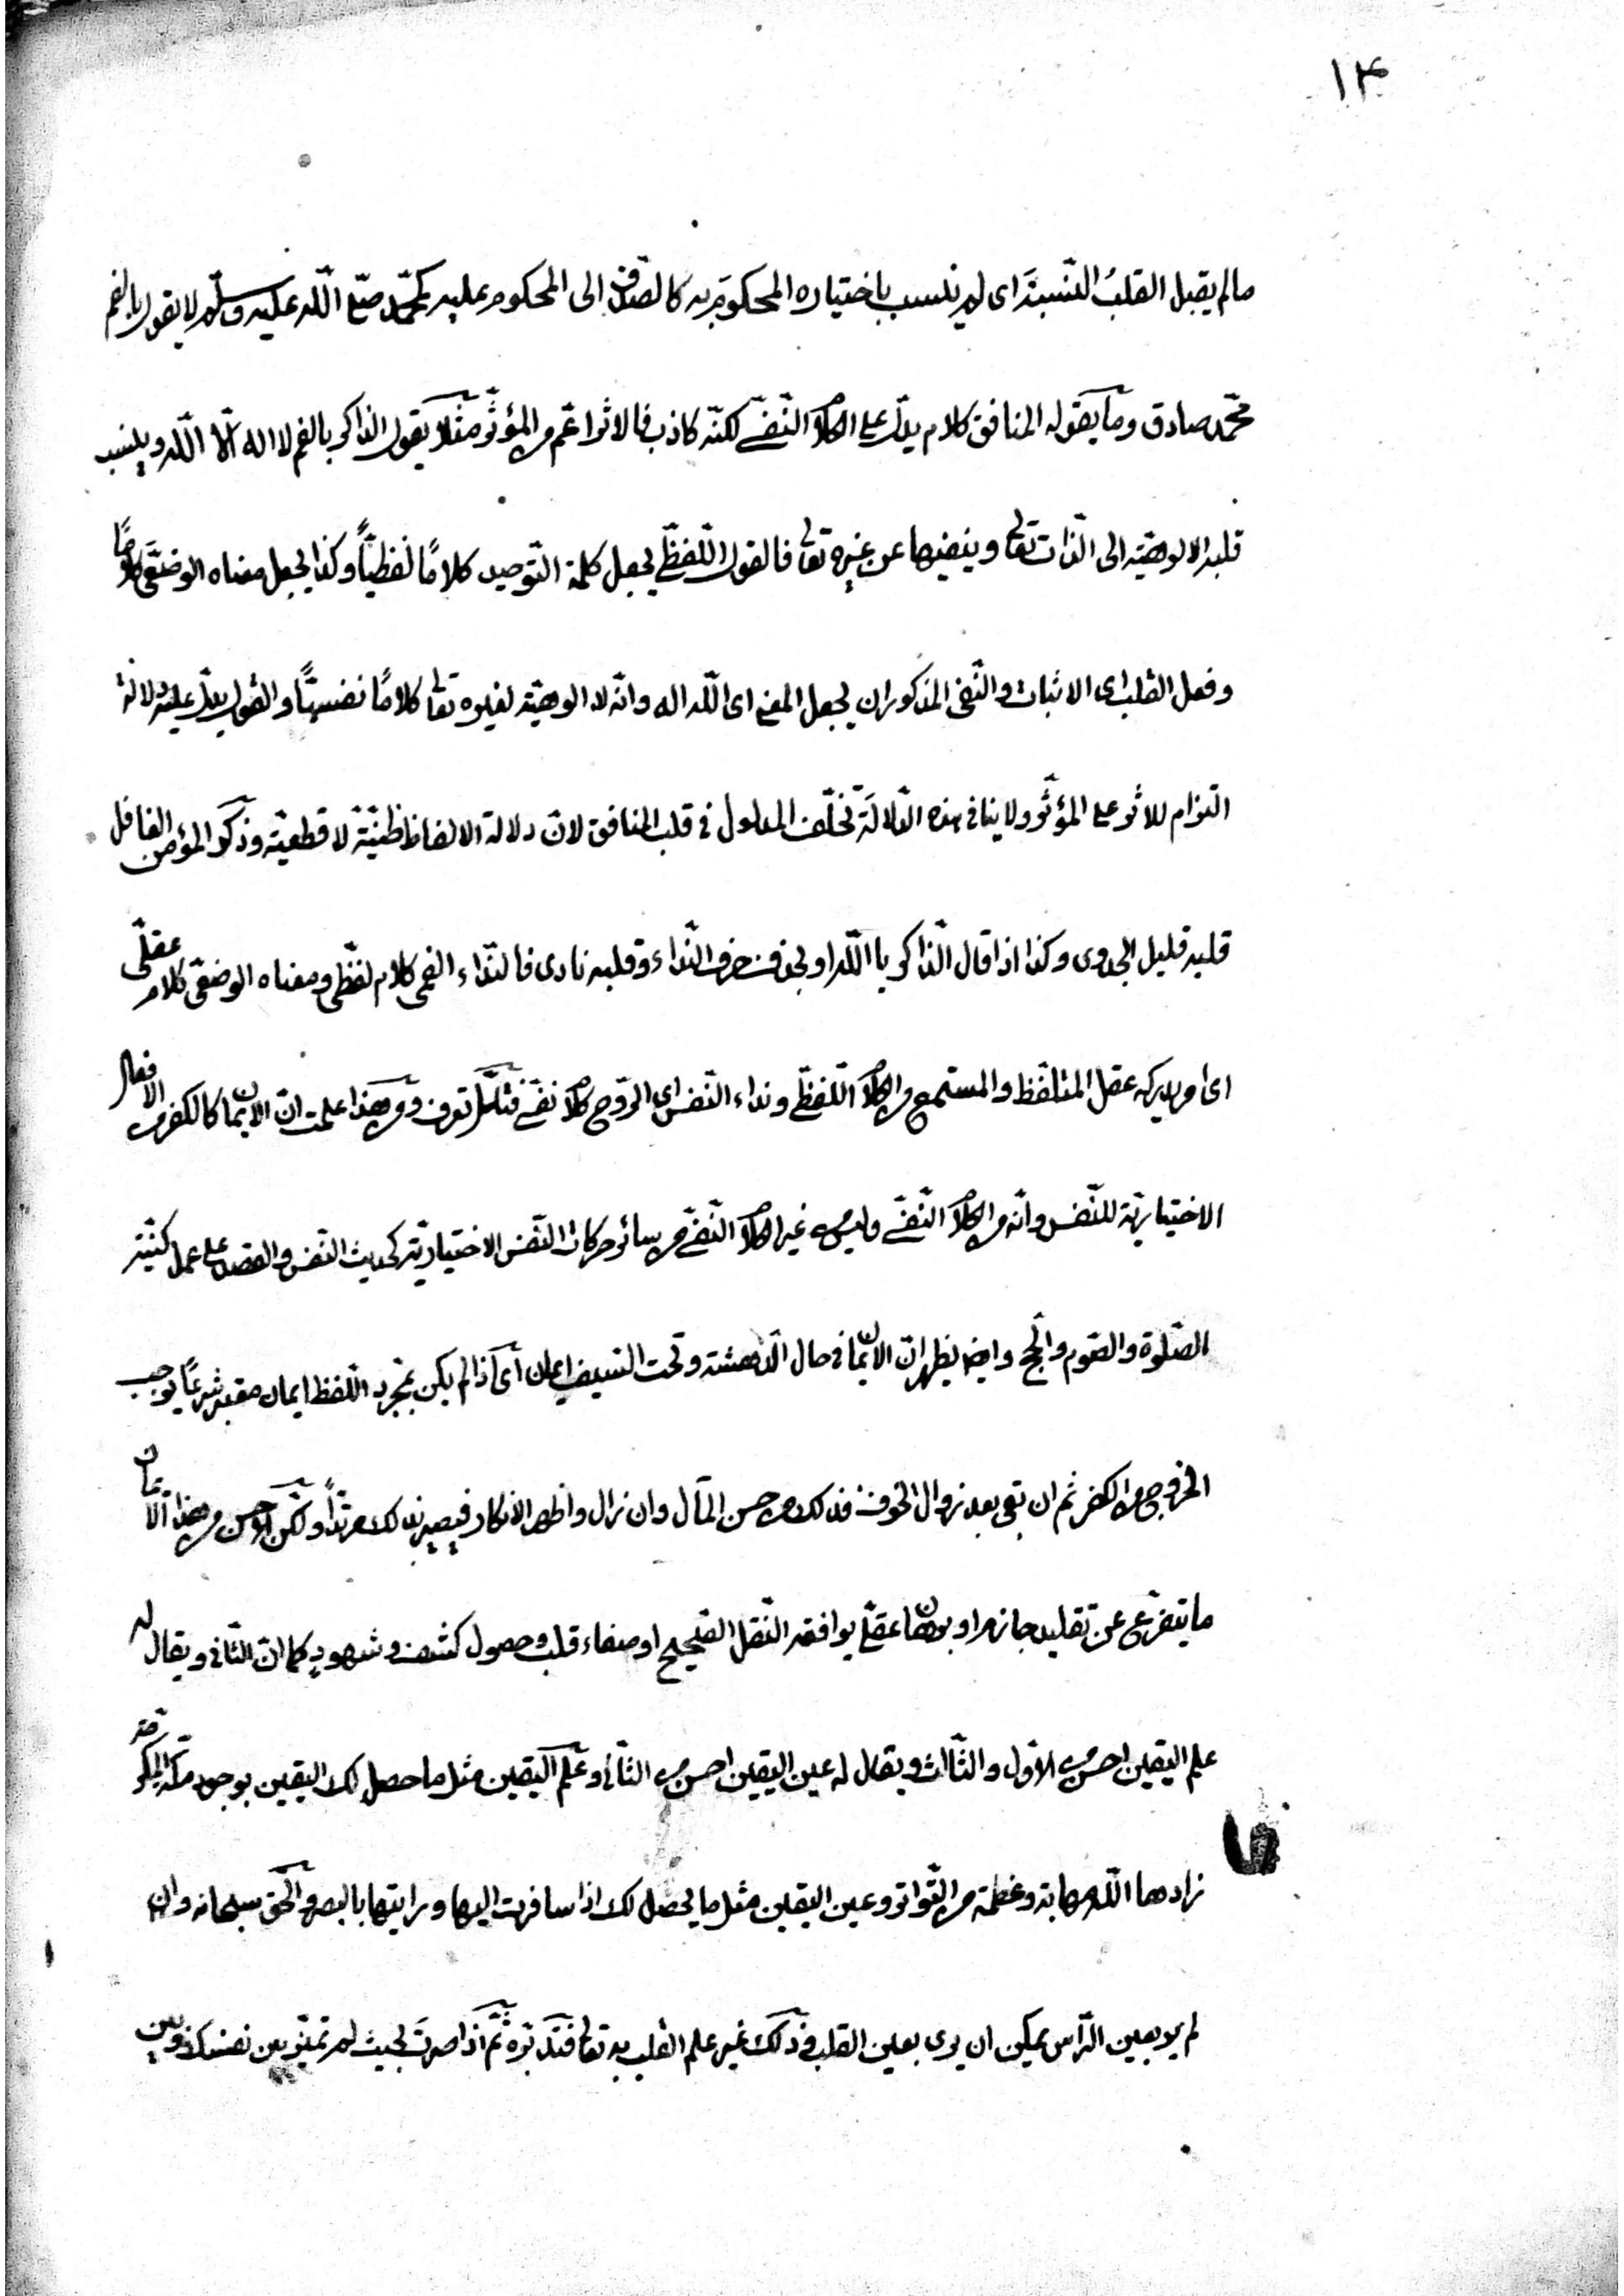 ١٤
مالم يقبل القلبُ النّسبةَ اى لم ينسب باختياره المحكومَ به كالصّدق الى المحكوم عليه كمحمّد صلّى اللّه عليه وسلّم لا يقول بالفم
محمّد صادق وما يقوله المنافق كلام يدلّ على الكلا النّفسّى لكنّه كاذب فالاثر اعمّ من المؤثّر مثلا يقول الذاكر بالفم لا اله الّا اللّه وينسب
قلبه الالوهيّة الى الذّات تعالى وينفيها عن غيره تعالى فالقول اللّفظّى يجعل كلمة التّوحيد كلامًا لفظيّاً وكذا يجعل معناه الوضعّى كلامًا
وفعل القلب اى الاثبات والنّفى المذكوران يجعل المعنى اى اللّه اله وانّه لا الوهيّة لغيره تعالى كلامًا نفسيّاً والقول يدلّ عليه دلالة
التزام للاثر على المؤثّر ولا ينافى هذه الدّلالةَ تخلّف المدلول فى قلب المنافق لانّ دلالة الالفاظ ظنّيّة لا قطعيّة وذكر المؤمن الغافل
قلبه قليل الجدوى وكذا اذا قال الذّاكر يا اللّه او بحذف حرف النّداء وقلبه نادى فالنّداء الفمى كلام لفظّى ومعناه الوضعّى كلام عقلّى
اى امر يدركه عقل المتلفّظ والمستمع من الكلا اللّفظّى ونداء النّفس اى الرّوح كلا نفسّى فتأمّل تعرف ومن هذا علمت انّ الايمان كالكفر من الافعال
الاختياريّة للنّفس وانّه من الكلا النّفسّى وليس غير الكلا النّفسّى من سائر حركات النّفس الاختياريّة كحديث النّفس والقصد على عمل كنيّة
الصّلوة والصّوم والحجّ وايضا يظهر انّ الايمان فى حال الدّهشة وتحت السّيف ايمان اى اذا لم يكن بمجرّد اللّفظ ايمان معتبر شرعًا يوجب
الخروج من الكفر ثم ان بقى بعد زوال الخوف فذلك من حسن المآل وان زال واظهر الانكار فيصير بذلك مرتدّاً ولكن احسن من هذا الايمان
ما يتفرّع عن تقليد جازم او برهان عقلّى يوافقه النّقل الصّحيح او صفاء قلب وحصول كشف وشهودٍ كما انّ الثّانى ويقال له
علم اليقين احسن من الاوّل والثّالث ويقال له عين اليقين احسن من الثّانى وعلم اليقين مثل ما حصل لك اليقين بوجود مكّة المكرّمة
زادها اللّه مهابة وعظمة من التّواتر وعين اليقين مثل ما يحصل لك اذا سافرت اليها ورايتها بالبصر والحقّ سبحانه وان
لم ير بعين الرّأس يمكن ان يرى بعين القلب وذلك غير علم القلب به تعالى فتدبّره ثمّ اذا صرتَ بحيث لم تميّز بين نفسك وبين